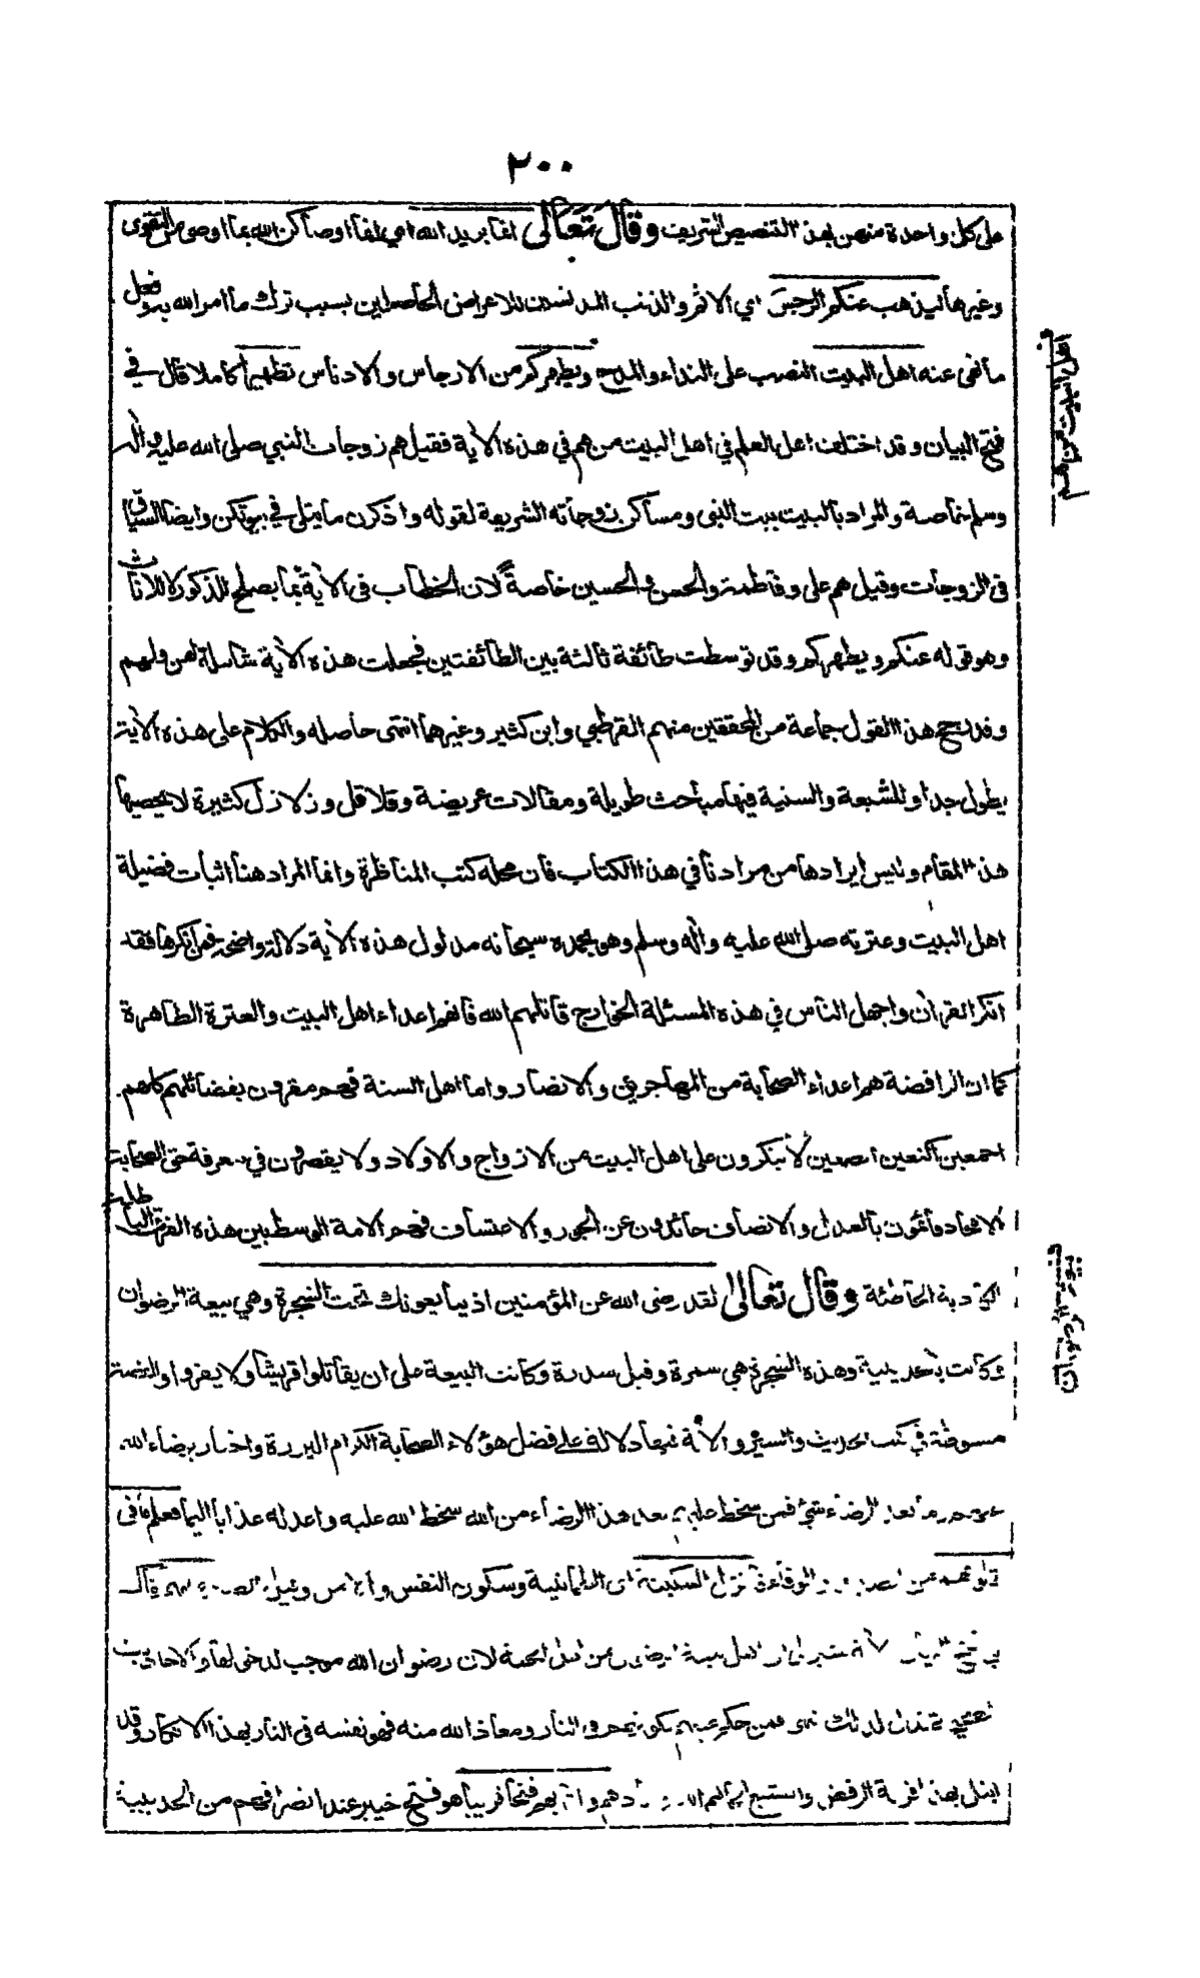 ٢٠٠
على كل واحدة منهن بهذا التنصيص الشريف وقال تعالى انما يريد الله اي انما اوصاكن الله بما اوصى من التقوى
وغيرها ليذهب عنكم الرجس اي الاثم والذنب المدنسين للاعراض الحاصلين بسبب ترك ما امر الله به وفعل
ما نهى عنه اهل البيت النصب على النداء والمدح ويطهركم من الارجاس والادناس تطهيرا كاملا قال في
فتح البيان وقد اختلف اهل العلم في اهل البيت من هم في هذه الأية فقيل هم زوجات النبي صلى الله عليه وأله
وسلم خاصة والمراد بالبيت بيت النبى ومساكن زوجاته الشريعة لقوله واذكرن ما يتلى في بيوتكن وايضا السياق
فى الزوجات وقيل هم على وفاطمة والحسن والحسين خاصةً لان الخطاب فى الأية بما يصلح للذكور لا للاناث
وهو قوله عنكم ويطهركم وقد توسطت طائفة ثالثة بين الطائفتين فجعلت هذه الأية شاملة لهن ولهم
وقد رجح هذا القول جماعة من المحققين منهم القرطبي وابن كثير وغيرهما انتهى حاصله والكلام على هذه الأية
يطول جدا وللشيعة والسنية فيها مباحث طويلة ومقالات عريضة وقلاقل وزلازل كثيرة لا يحصيها
هذا المقام وليس ايرادها من مرادنا في هذا الكتاب فان محله كتب المناظرة وانما المراد هنا اثبات فضيلة
اهل البيت وعترته صلى الله عليه وأله وسلم وهو بحمده سبحانه مدلول هذه الأية دلالة واضحة فمن انكرها فقد
انكر القرأن واجهل الناس في هذه المسئلة الخوارج قاتلهم الله فانهم اعداء اهل البيت والعترة الطاهرة
كما ان الرافضة هم اعداء الصحابة من المهاجرين والانصار واما اهل السنة فهم مقرون بفضائلهم كلهم
اجمعين اكتعين ابصعين لا ينكرون على اهل البيت من الازواج والاولاد ولا يقصرون في معرفة حق الصحابة
الامجاد قائمون بالعدل والانصاف حائدون عن الجور والاعتساف فهم الامة الوسط بين هذه الفرق الباطلة
الكاذبة الخاطئة وقال تعالى لقد رضى الله عن المؤمنين اذ يبايعونك تحت الشجرة وهي بيعة الرضوان
وكانت بالحديبية وهذه الشجرة هي سمرة وقيل سدرة وكانت البيعة على ان يقاتلوا قريشا ولا يفروا والقصة
مبسوطة في كتب الحديث والسير والأية فيها دلالة على فضل هؤلاء الصحابة الكرام البررة واخبار برضاء الله
عنهم وما بعد الرضاء شئ فمن سخط عليهم بعد هذا الرضاء من الله سخط الله عليه واعد له عذابا اليما فعلم ما فى
قلوبهم من الصدق والوفاء فانزل السكينة اى الطمانينة وسكون النفس عليهم قال
فتح البيان اهل بيعة الرضوان من اهل الجنة لان رضوان الله موجب لدخولها والاحاديث
الصحيحة تدل لذلك فمن حكم عليهم بكونهم في النار ومعاذ الله منه فهو نفسه فى النار بهذا الانكار وقد
ابتلى بهذا فرقة الرفض واثابهم فتحا قريبا هو فتح خيبر عند انصرافهم من الحديبية